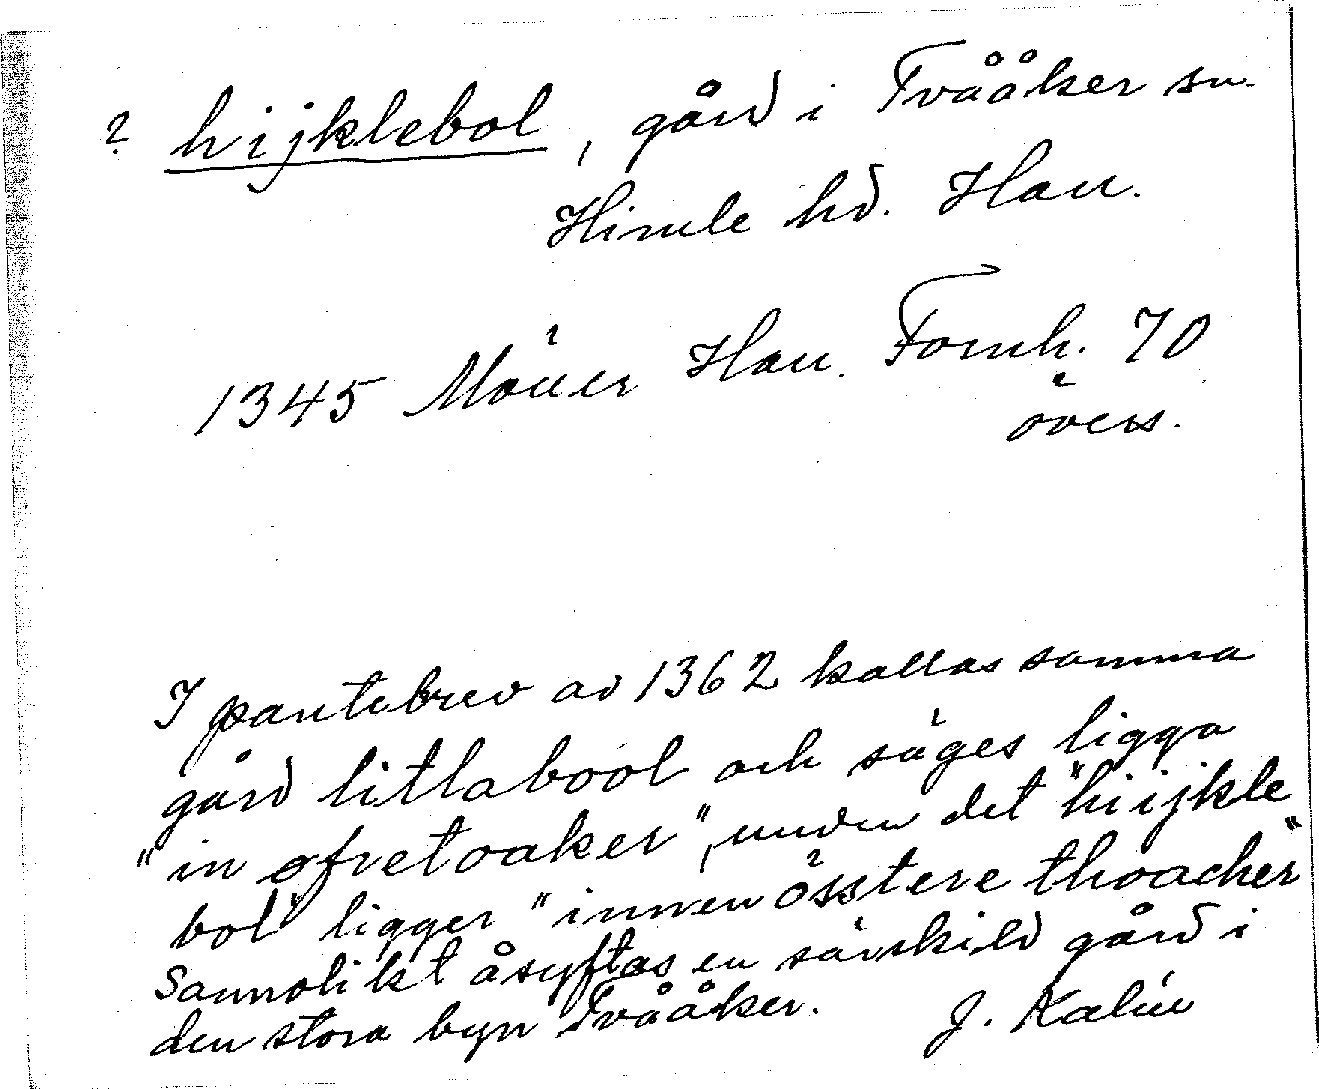 ? hijklebol, gård i Tvååker sn.
Himle hd. Hall.
1345 Möller Hall. Fornh. 70
övers.
I pantebrev av 1362 kallas samma
gård litlabool och säges ligga
"in øfretoaker", under det "hiijkle
bol" ligger "innen össtere thoacker"
Sannolikt åsyftas en särskild gård i
den stora byn Tvååker. J. Kalén